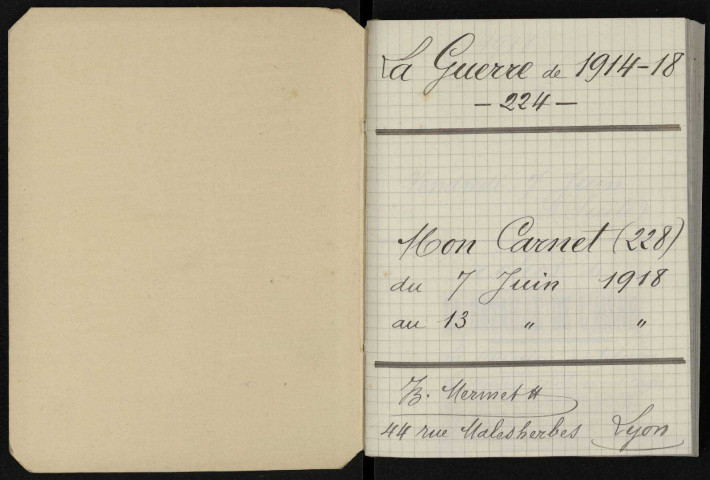 La Guerre de 1914-18
- 224 -
Mon Carnet (228)
du 7 Juin 1918
au 13 " "
B. Mermet
44 rue Malesherbes Lyon